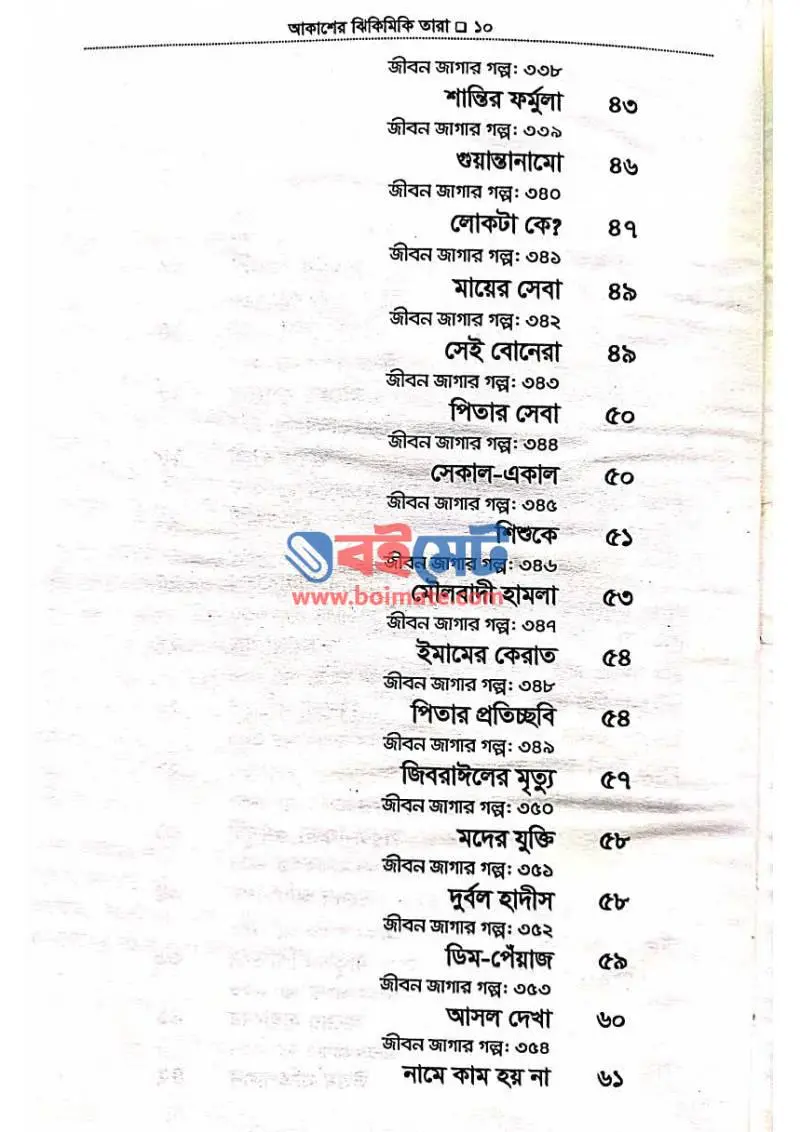 আকাশের ঝিকিমিকি তারা □ ১০
জীবন জাগার গল্প: ৩৩৮
শান্তির ফর্মুলা ৪৩
জীবন জাগার গল্প: ৩৩৯
গুয়ান্তানামো ৪৬
জীবন জাগার গল্প: ৩৪০
লোকটা কে? ৪৭
জীবন জাগার গল্প: ৩৪১
মায়ের সেবা ৪৯
জীবন জাগার গল্প: ৩৪২
সেই বোনেরা ৪৯
জীবন জাগার গল্প: ৩৪৩
পিতার সেবা ৫০
জীবন জাগার গল্প: ৩৪৪
সেকাল-একাল ৫০
জীবন জাগার গল্প: ৩৪৫
শিশুকে ৫১
বইমেট
জীবন জাগার গল্প: ৩৪৬
মৌলবাদী হামলা ৫৩
www.boimate.com
জীবন জাগার গল্প: ৩৪৭
ইমামের কেরাত ৫৪
জীবন জাগার গল্প: ৩৪৮
পিতার প্রতিচ্ছবি ৫৪
জীবন জাগার গল্প: ৩৪৯
জিবরাঈলের মৃত্যু ৫৭
জীবন জাগার গল্প: ৩৫০
মদের যুক্তি ৫৮
জীবন জাগার গল্প: ৩৫১
দুর্বল হাদীস ৫৮
জীবন জাগার গল্প: ৩৫২
ডিম-পেঁয়াজ ৫৯
জীবন জাগার গল্প: ৩৫৩
আসল দেখা ৬০
জীবন জাগার গল্প: ৩৫৪
নামে কাম হয় না ৬১